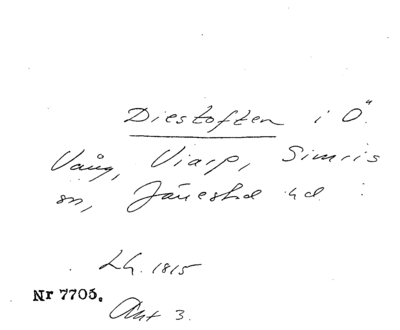 Diestoften i Ö.
Vång, Viarp, Simris
sn, Järrestad hd.
Lh. 1815
Nr 7705.
Akt 3.